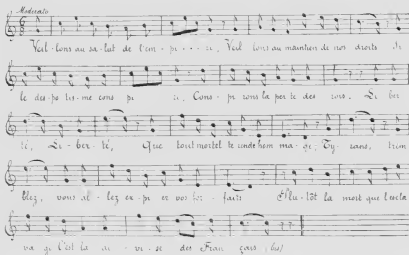 Moderato
Veil-lons au sa-lut de l'em-pi---re, Veil lons au maintien de nos droits Si
le des-po-tis-me cons pi re, Cons-pi rons la per te des rois. Li ber
té, Li-ber-té, Que tout mortel te rende hom ma-ge; Ty-rans, trem
blez, vous al-lez ex-pi er vos for-faits Plu-tôt la mort que l'escla
va ge C'est la de-vi-se des Fran çais (bis)